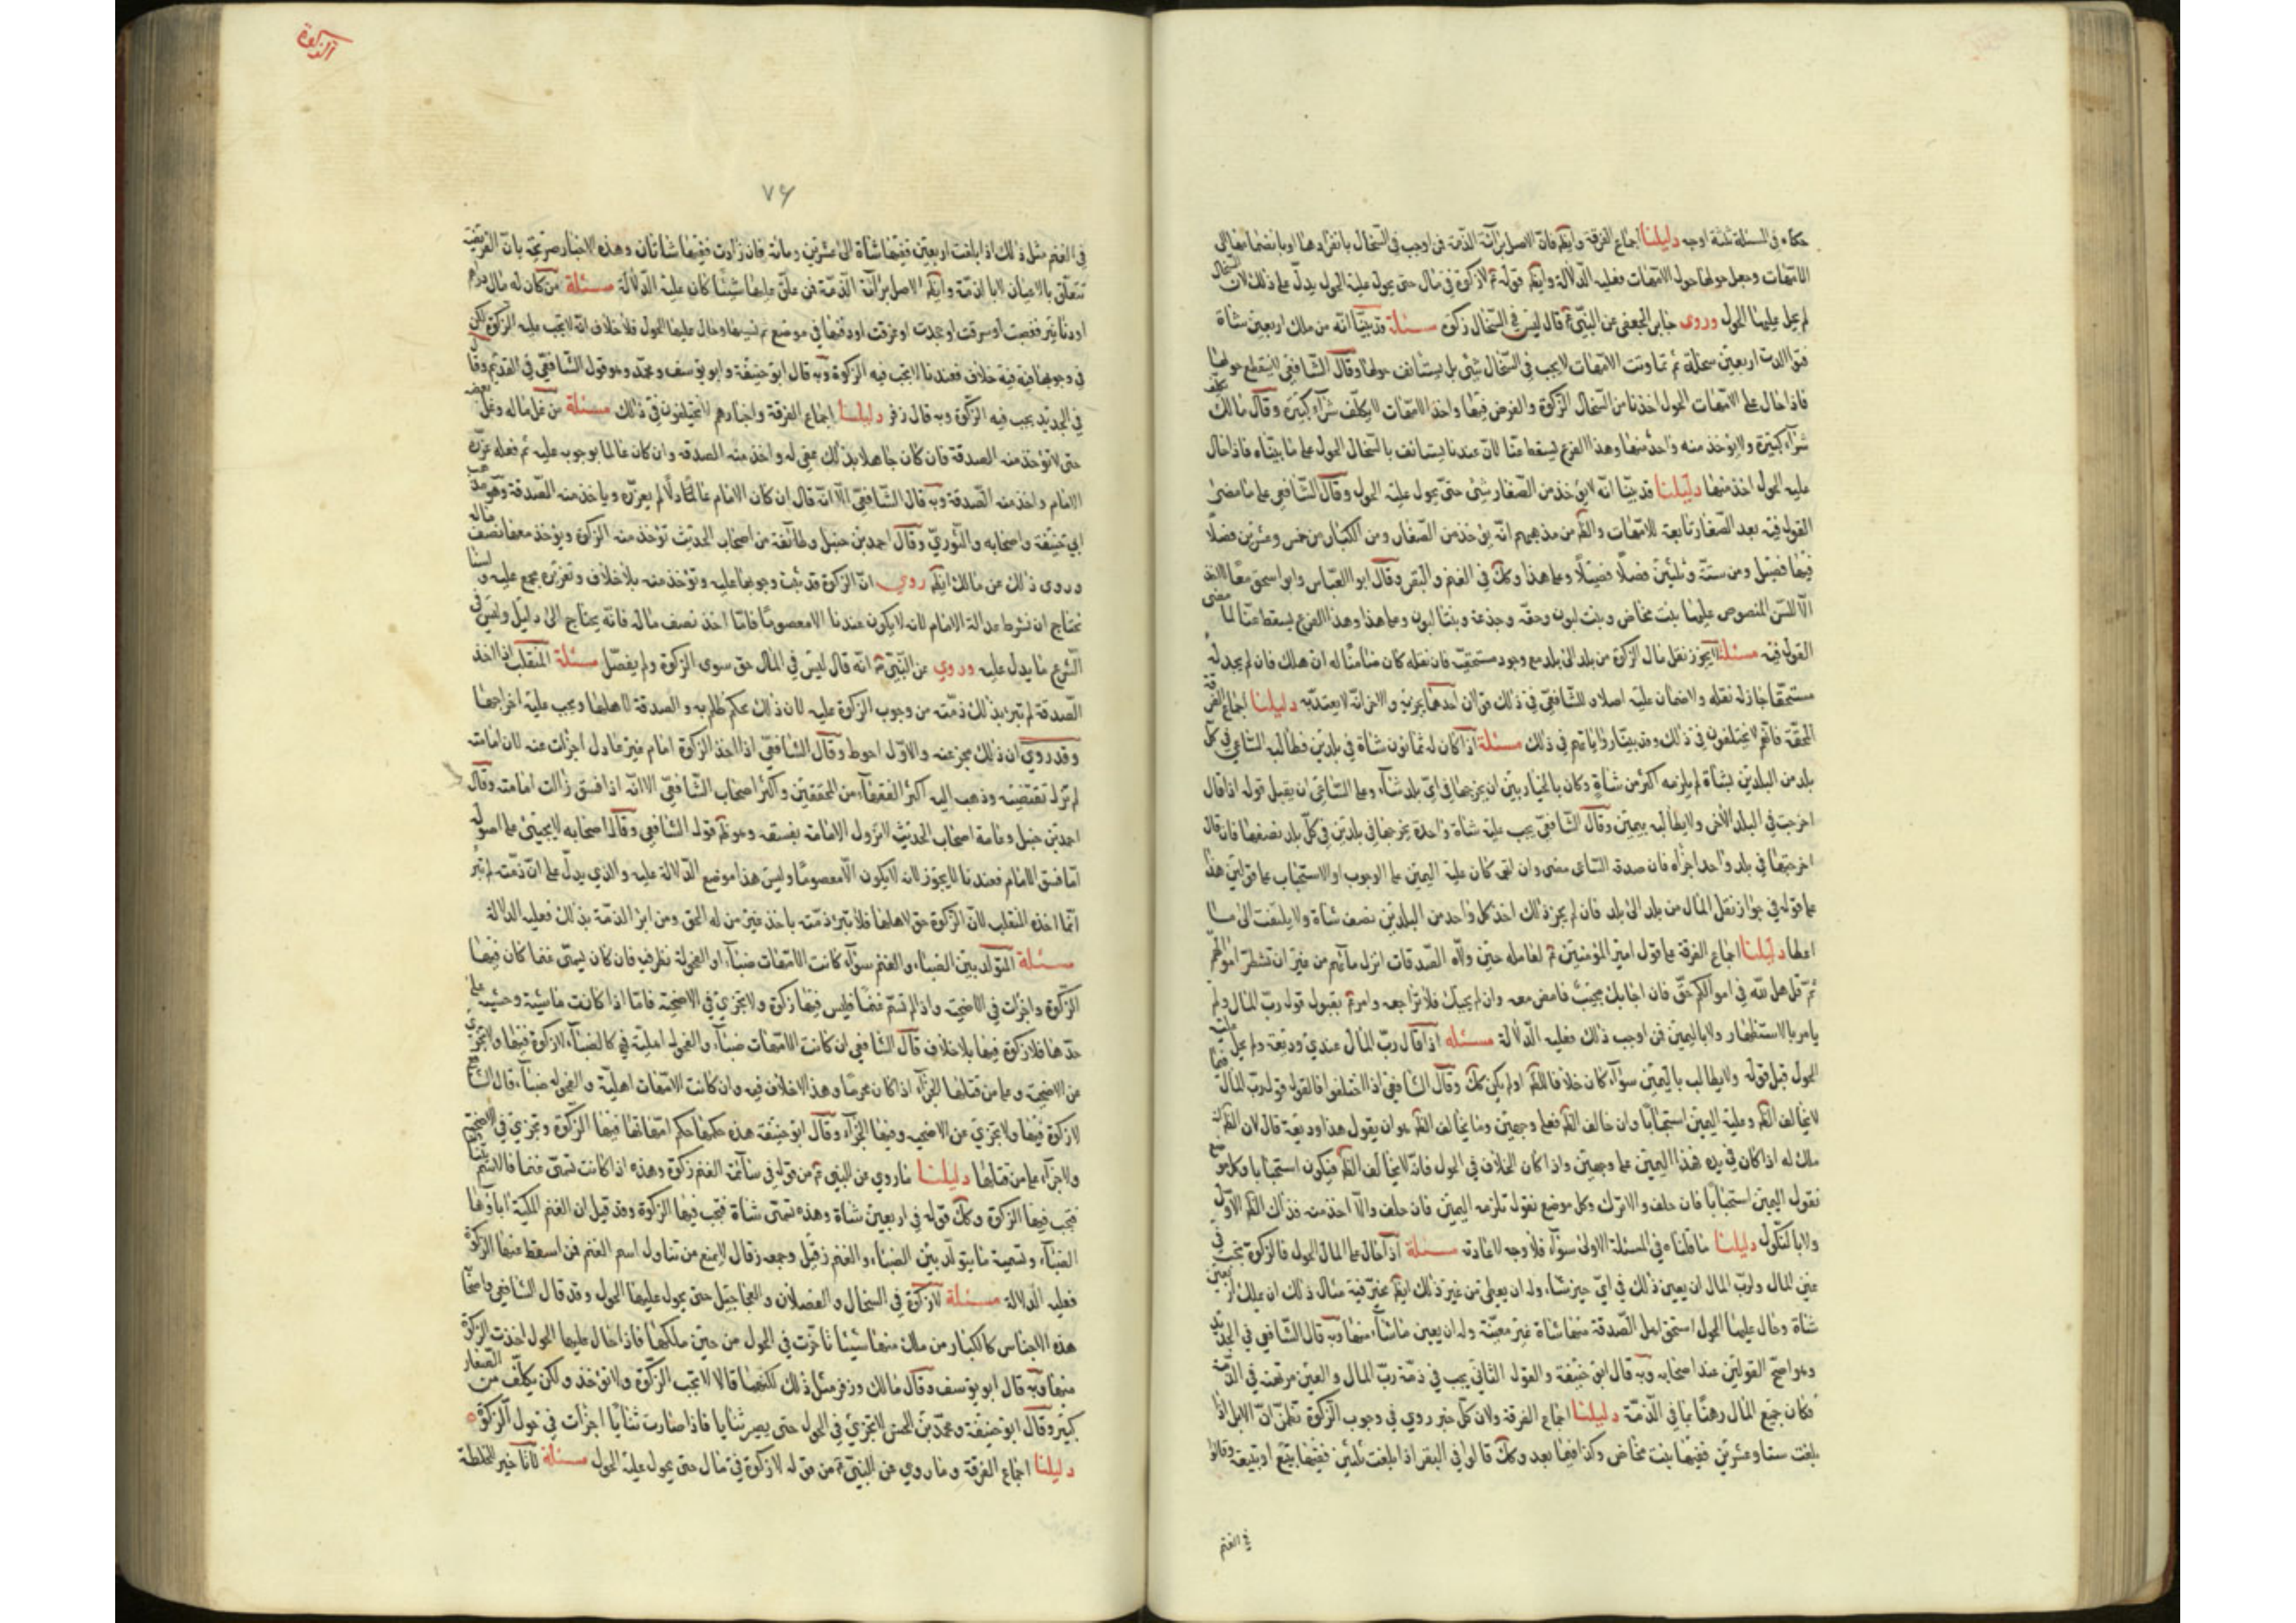 حكاه في المسئلة ثلثة اوجه دليلنا اجماع الفرقة وايضا فان الاصل برائة الذمة فمن اوجب في السخال بانفرادها او بانضمامها الى
الامهات وجعل حولها حول الامهات فعليه الدلالة وايضا قوله لا زكوة في مال حتى يحول عليه الحول يدل على ذلك لان السخال
لم يحل عليها الحول وروى جابر الجعفي عن النبي قال ليس في السخال زكوة مسئلة قد بينا انه من ملك اربعين شاة
فتوالدت اربعين سخلة ثم تماوتت الامهات لا يجب في السخال شئ بل يستانف حولها وقال الشافعي لا ينقطع حولها
فاذا حال على الامهات الحول اخذنا من السخال الزكوة والفرض فيها واخذ الامهات لا يكلف شراء كبيرة وقال مالك يكلف
شراء كبيرة ولا يؤخذ منه واحد منها وهذا الفرع يسقط عنا لان عندنا يستانف بالسخال الحول على ما بيناه فاذا حال
عليه الحول اخذ منها دليلنا قد بينا انه لا يؤخذ من الصغار شئ حتى يحول عليه الحول وقال الشافعي على ما مضى
القول فيه بعد الصغار تابعة للامهات والظ من مذهبهم انه يؤخذ من الصغار ومن الكبار من خمس وعشرين فصلا
فيها فصيل ومن ستة وثلثين فصلا فصيلا وعلى هذا وكك في الغنم والبقر وقال ابو العباس وابو اسحق معا لا يؤخذ
الا السن المنصوص عليها بنت مخاض وبنت لبون وحقه وجذعة وبنتا لبون وعلى هذا وهذا الفرع يسقط عنا لما مضى
القول فيه مسئلة لا يجوز نقل مال الزكوة من بلد الى بلد مع وجود مستحقيه فان نقله كان ضامنا له ان هلك فان لم يجد له
مستحقا جاز له نقله ولا ضمان عليه اصلا وللشافعي في ذلك قولان احدهما يجزيه والاخر انه لا يعتد به دليلنا اجماع الفرقة
المحقة فانهم لا يختلفون في ذلك وقد بينا رواياتهم في ذلك مسئلة اذا كان له ثمانون شاة في بلدين فطالبه الساعي في كل
بلد من البلدين بشاة لم يلزمه اكثر من شاة وكان بالخيار بين ان يخرجها في اي بلد شاء وعلى الساعي ان يقبل قوله اذا قال
اخرجت في البلد الاخر ولا يطالبه بيمين وقال الشافعي يجب عليه شاة واحدة يخرجها في بلدين في كل بلد نصفها فان قال
اخرجتها في بلد واحد اجزاه فان صدقه الساعي مضى وان لقى كان عليه اليمين على الوجوب او الاستحباب على قولين هذا
على قوله في جواز نقل المال من بلد الى بلد فان لم يجز ذلك اخذ كل واحد من البلدين نصف شاة ولا يلتفت الى ما
اعطا دليلنا اجماع الفرقة على قول امير المؤمنين لعامله حين ولاه الصدقات انزل مائهم من غير ان تشطر اموالهم
ثم قل هل لله في اموالكم حق فان اجابك مجيب فامض معه وان لم يجبك فلا تراجعه وامرتم بقبول قول رب المال ولم
يامر بالاستظهار ولا باليمين فمن اوجب ذلك فعليه الدلالة مسئله اذا قال رب المال عندي وديعة ولم يحل عليه
الحول قبل قوله ولا يطالب باليمين سواء كان خلافا للظ او لم يكن كك وقال الشافعي اذا اختلفوا فالقول قول رب المال فيما
لا يخالف الظ وعليه اليمين استحبابا وان خالف الظ فعلى وجهين وما يخالف الظ هو ان يقول هذا وديعة قال لان الظ انه
ملك له اذا كان في يده هذا اليمين على وجهين واذا كان الخلاف في الحول فانه لا يخالف الظ فيكون استحبابا وكل موضع
نقول اليمين استحبابا فان حلف والا ترك وكل موضع نقول تلزمه اليمين فان حلف والا اخذ منه فذلك الظ الاول
ولا بالنكول دليلنا ما قلناه في المسئلة الاولى سواء فلا وجه لاعادته مسئلة اذا حال على المال الحول فالزكوة تجب في
عين المال ولرب المال ان يعين ذلك في اي حيز شاء وله ان يعطى من غير ذلك ايض مخير فيه مثال ذلك ان يملك اربعين
شاة وحال عليها الحول استحق اهل الصدقة منها شاة غير معينة وله ان يعين ما شاء منها وبه قال الشافعي في الجديد
وهو اصح القولين عند اصحابه وبه قال ابو حنيفة والقول الثاني يجب في ذمة رب المال والعين مرتهنة في الذمة
فكان جميع المال رهنا بما في الذمة دليلنا اجماع الفرقة ولان كل خبر روي في وجوب الزكوة تضمن ان الابل اذا
بلغت ستا وعشرين ففيها بنت مخاض وكذا فيها بعد وكك قالوا في البقر اذا بلغت ثلثين ففيها تبيع او تبيعة وقالوا
في الغنم
الزكوة
٧۶
في الغنم مثل ذلك اذا بلغت اربعين ففيها شاة الى عشرين ومائة فان زادت ففيها شاتان وهذه الاخبار صريحة بان الفريضة
تتعلق بالاعيان لا بالذمة وايضا الاصل برائة الذمة فمن علق عليها شيئا كان عليه الدلالة مسئلة من كان له مال دراهم
او دنانير فغصبت او سرقت او جحدت او غرقت او دفنها في موضع ثم نسيها وحال عليها الحول فلا خلاف انه لا يجب عليه الزكوة لكن
في وجوبها فيه خلاف فعندنا لا يجب فيه الزكوة وبه قال ابو حنيفة وابو يوسف ومحمد وهو قول الشافعي في القديم وقال
في الجديد يجب فيه الزكوة وبه قال زفر دليلنا اجماع الفرقة واخبارهم لا يختلفون في ذلك مسئلة من غل ماله وغل بعضه
حتى لا تؤخذ منه الصدقة فان كان جاهلا بذلك عفى له واخذ منه الصدقة وان كان عالما بوجوب عليه ثم فعله عزره
الامام واخذ منه الصدقة وبه قال الشافعي الا انه قال ان كان الامام عادلا لم يعزره وياخذ منه الصدقة وهو مذهب
ابي حنيفة واصحابه والثوري وقال احمد بن حنبل وطائفة من اصحاب الحديث تؤخذ منه الزكوة ويؤخذ معها نصف ماله
وروى ذلك عن مالك ايضا روي ان الزكوة قد ثبت وجوبها عليه وتؤخذ منه بلا خلاف وتعزيره مجمع عليه ولسنا
نحتاج ان نشرط عدالة الامام لانه لا يكون عندنا الا معصوما فاما اخذ نصف ماله فانه يحتاج الى دليل وليس في
الشرع ما يدل عليه وروي عن النبي انه قال ليس في المال حق سوى الزكوة ولم يفصل مسئلة المتغلب اذا اخذ
الصدقة لم تبرء بذلك ذمته من وجوب الزكوة عليه لان ذلك بحكم ظلم به والصدقة لاهلها ويجب عليه اخراجها
وقد روي ان ذلك مجز عنه والاول احوط وقال الشافعي اذا اخذ الزكوة امام غير عادل اجزات عنه لان امامته
لم تزل تقتضيه وذهب اليه اكثر الفقهاء من المحققين واكثر اصحاب الشافعي الا انه اذا فسق زالت امامته وقال
احمد بن حنبل وعامة اصحاب الحديث لا تزول الامامة بفسقه وهو ظ قول الشافعي وقال اصحابه لا يجيئ على اصوله
اما فسق الامام فعندنا لا يجوز لانه لا يكون الا معصوما وليس هذا موضع الدلالة عليه والذي يدل على ان ذمته لم تبرء
انما اخذه المتغلب لان الزكوة حق لاهلها فلا تبرء ذمته باخذ غير من له الحق ومن ابرء الذمة بذلك فعليه الدلالة
مسئلة المتولد بين الضباء والغنم سواء كانت الامهات ضباء او الفحولة نظر فيه فان كان يسمى غنما كان فيها
الزكوة واجزات في الاضحية واذا لم تسم غنما فليس فيها زكوة ولا تجزي في الاضحية فاما اذا كانت ماشية وحشية على
حدها فلا زكوة فيها بلا خلاف قال الشافعي ان كانت الامهات ضباء والفحولة اهلية فهي كالضباء لا زكوة فيها ولا تجزي
من الاضحية وعلى من قتلها الجزاء اذا كان محرما وهذا لا خلاف فيه وان كانت الامهات اهلية والفحولة ضباء قال الشافعي
لا زكوة فيها ولا تجزي من الاضحية وفيها الجزاء وقال ابو حنيفة هذه حكمها حكم امهاتها فيها الزكوة وتجزي في الاضحية
ولا جزاء على من قتلها دليلنا ما روي عن النبي من قوله في سائمة الغنم زكوة وهذه اذا كانت تسمى غنما فالاسم يتناولها
فتجب فيها الزكوة وكك قوله في اربعين شاة وهذه تسمى شاة فتجب فيها الزكوة وقد قيل ان الغنم المكية اباؤها
الضباء وتسمية ما يتولد بين الضباء والغنم رقل وجمعه رقال لا يمنع من تناول اسم الغنم فمن اسقط عنها الزكوة
فعليه الدلالة مسئلة لا زكوة في السخال والفصلان والعجاجيل حتى يحول عليها الحول وقد قال الشافعي واصحابه
هذه الاجناس كالكبار من ملك منها شيئا تاخرت في الحول من حين ملكها فاذا حال عليها الحول اخذت الزكوة
منها وبه قال ابو يوسف وقال مالك وزفر مثل ذلك لكنهما قالا لا تجب الزكوة ولا تؤخذ ولكن يكلف من الصغار
كبير وقال ابو حنيفة ومحمد بن الحسن لا تجزي في الحول حتى يصير ثنايا فاذا صارت ثنايا اجزات في حول الزكوة
دليلنا اجماع الفرقة وما روي عن النبي من قوله لا زكوة في مال حتى يحول عليه الحول مسئلة لا تاخير للخلطة